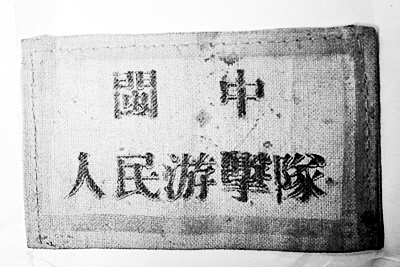 閩中
人民游擊隊